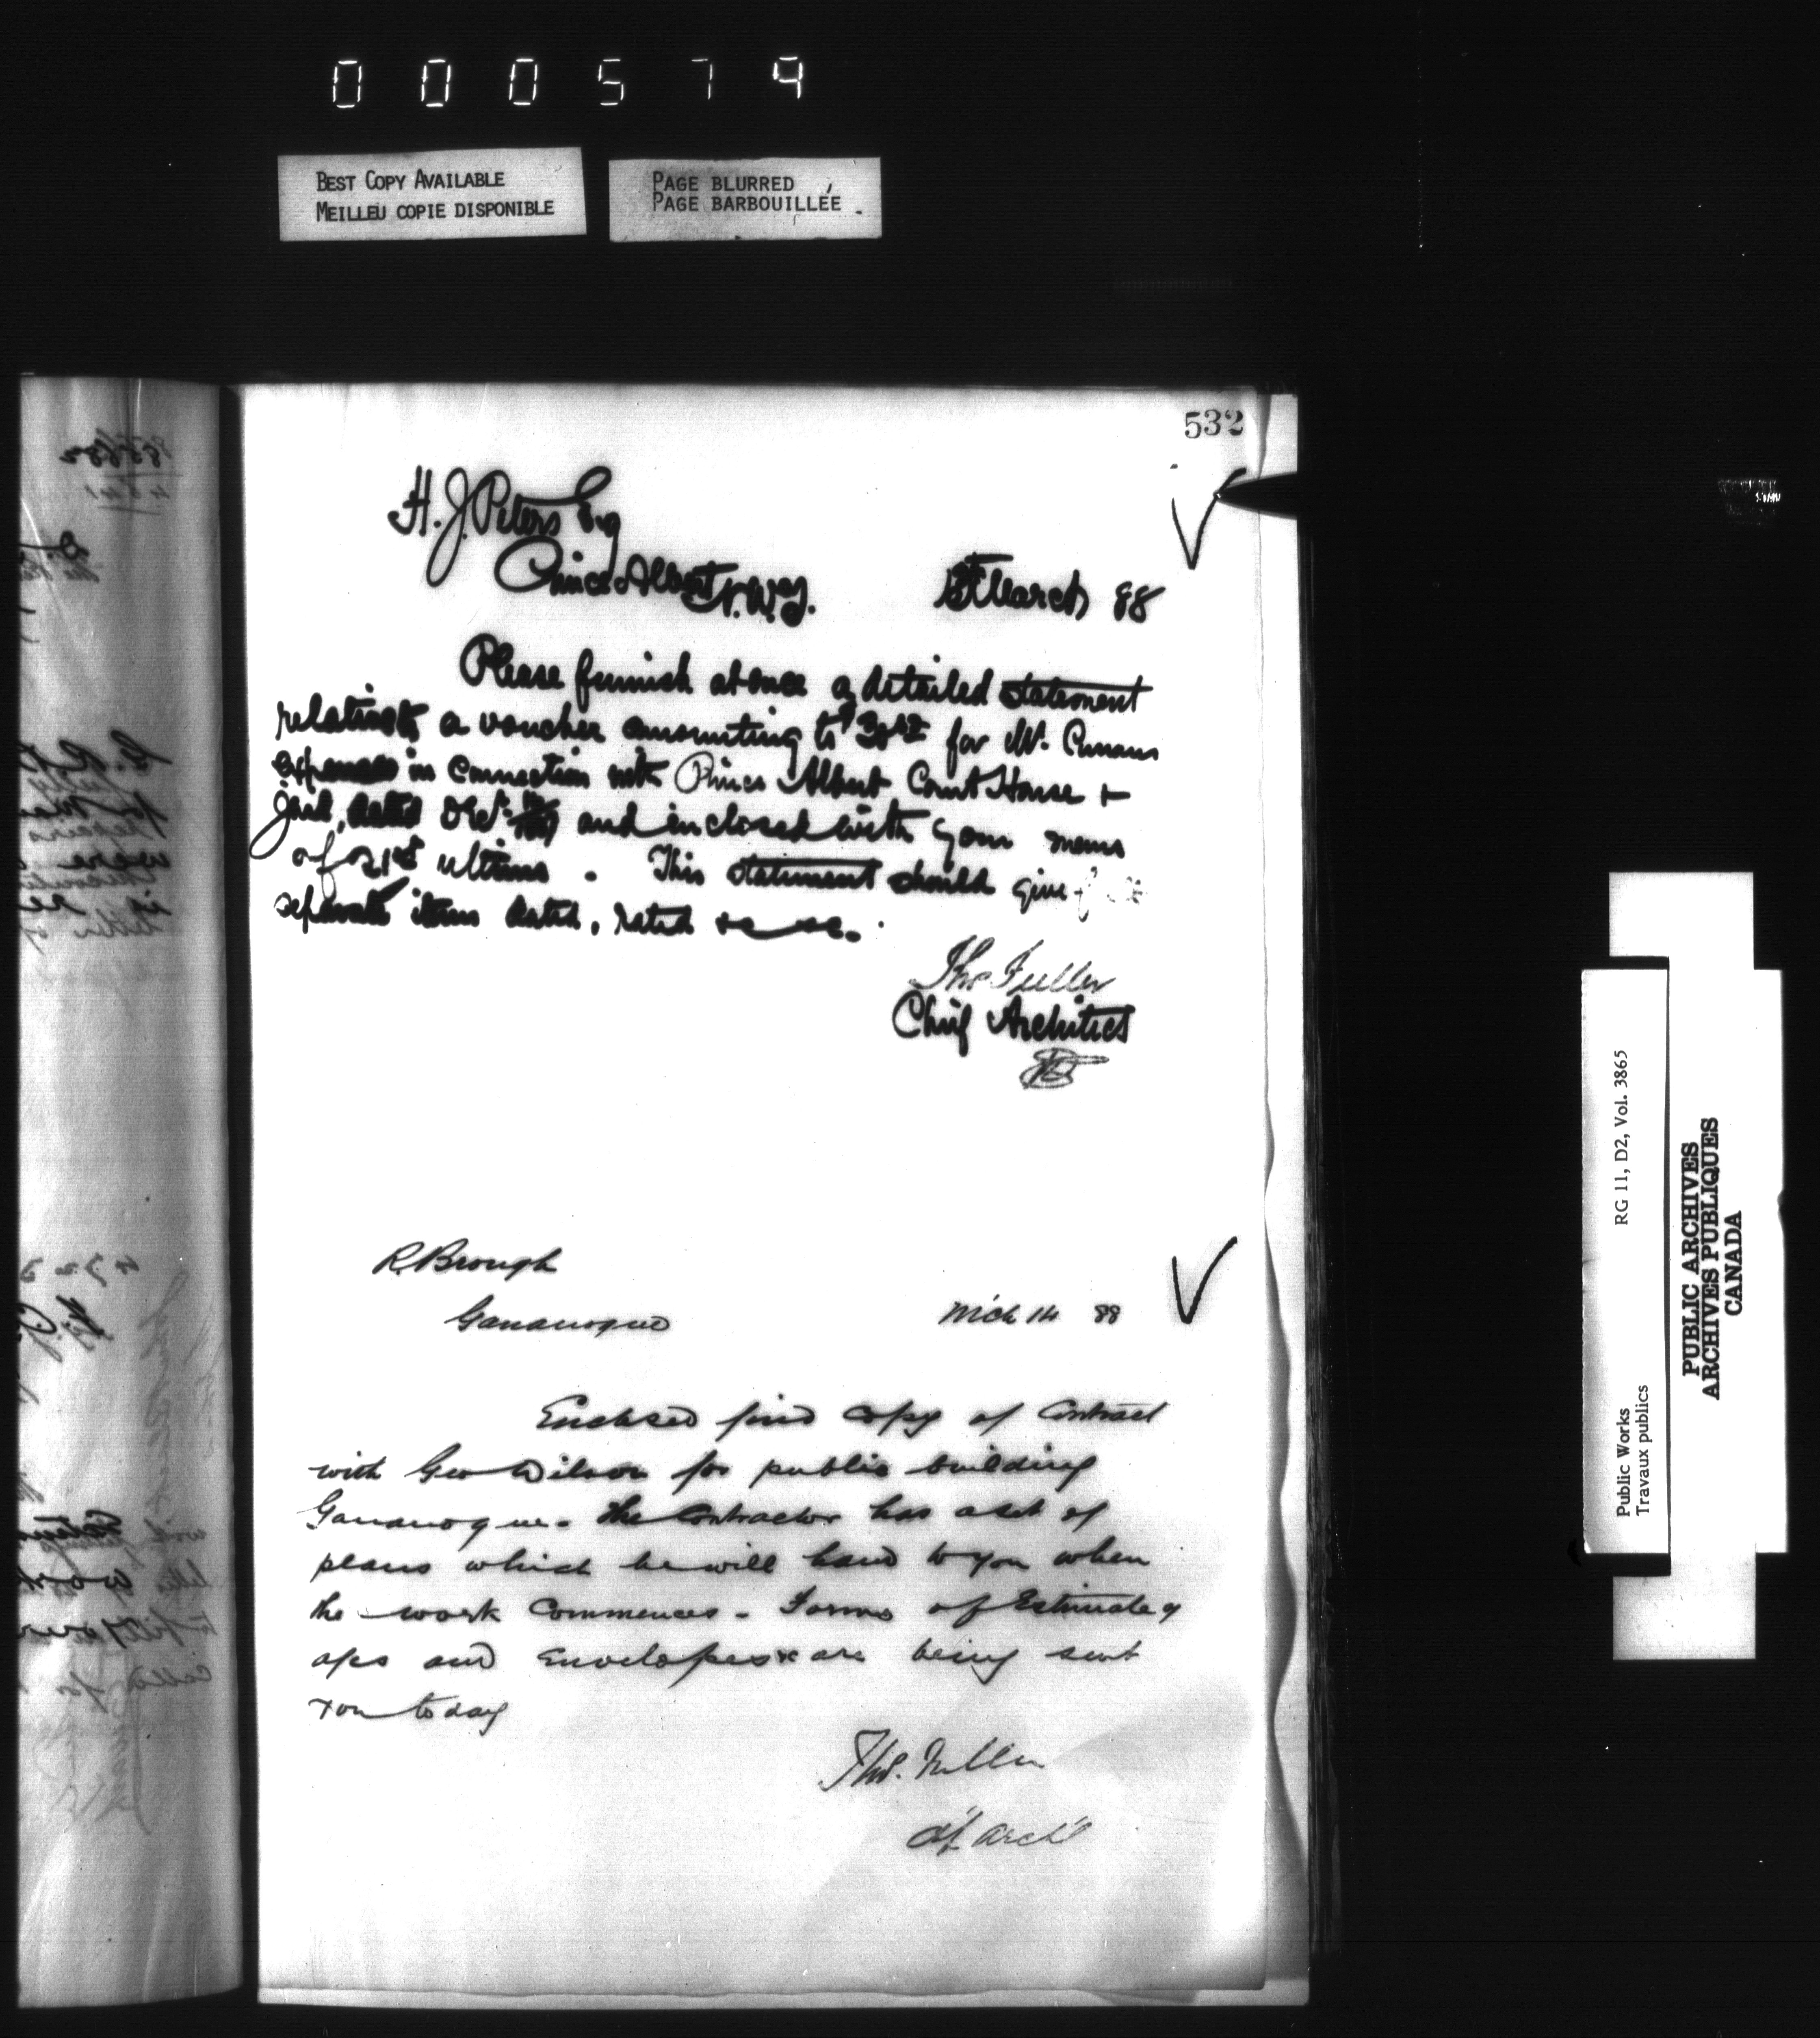 000579
BEST COPY AVAILABLE
MEILLEU COPIE DISPONIBLE
PAGE BLURRED
PAGE BARBOUILLÉE
532
H. J. Peters Esq
Prince Albert N.W.T.
March 88
Please furnish at once a detailed statement
relating to a voucher amounting to for Mr.
expenses in connection with Prince Albert Court House &
Jail, dated and inclosed with your memo
of 21st ultimo. This statement should give
separate items dated, rated &c &c.
Thos Fuller
Chief Architect
R. Brough
Gananoque
Mch 14 88
Enclosed find copy of Contract
with Geo Wilson for public building
Gananoque. The Contractor has a set of
plans which he will hand to you when
the work commences. Forms of Estimate
and Envelopes &c are being sent
you today
Thos. Fuller
Ch Arch't
Public Works
Travaux publics
RG 11, D2, Vol. 3865
PUBLIC ARCHIVES
ARCHIVES PUBLIQUES
CANADA